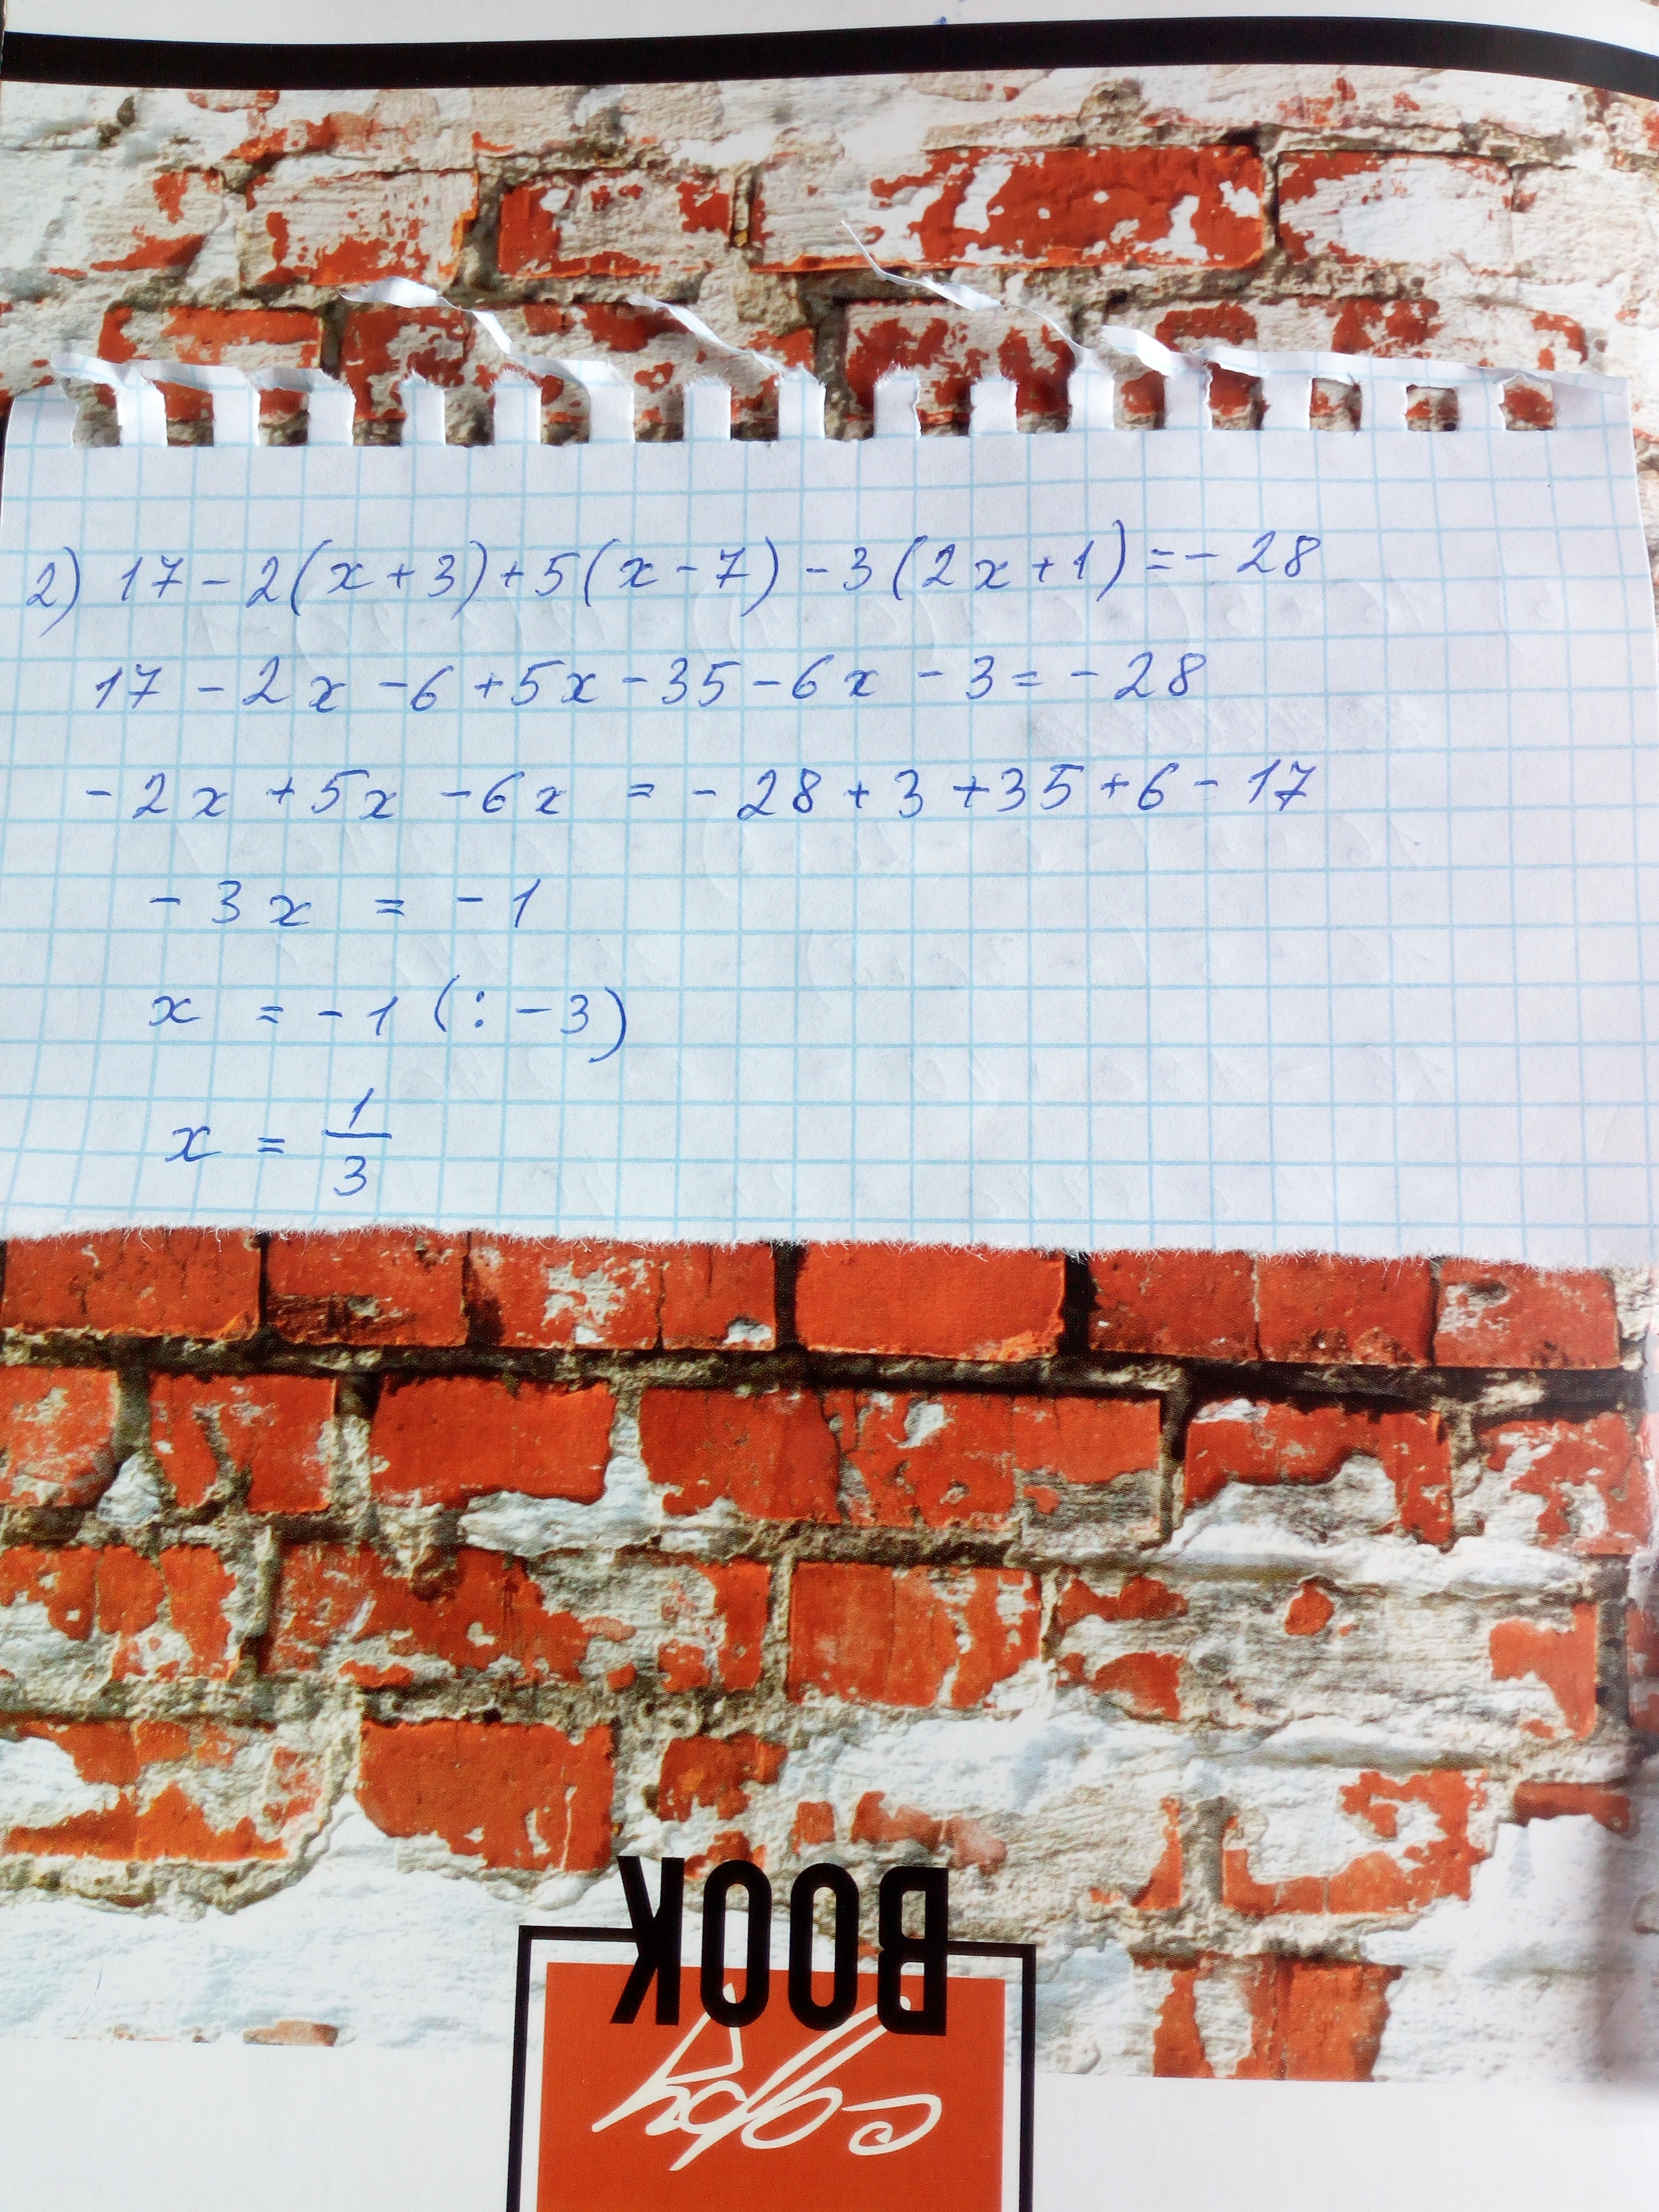 2) 17 - 2(x + 3) + 5(x - 7) - 3(2x + 1) = - 28
17 - 2x - 6 + 5x - 35 - 6x - 3 = - 28
- 2x + 5x - 6x = - 28 + 3 + 35 + 6 - 17
- 3x = - 1
x = - 1 (: - 3)
x = 1/3
BOOK